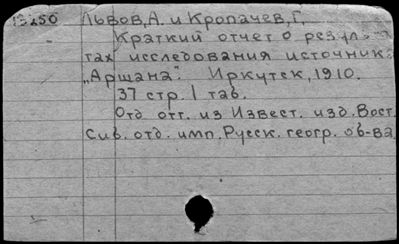 13250 Львов, А. и Кропачев, Г.
Краткий отчет о резуль-
татах исследования источника
„Аршана". Иркутск, 1910.
37 стр. 1 таб.
Отд. отт. из Извест. изд. Вост.
Сиб. отд. имп. Русск. геогр. об-ва